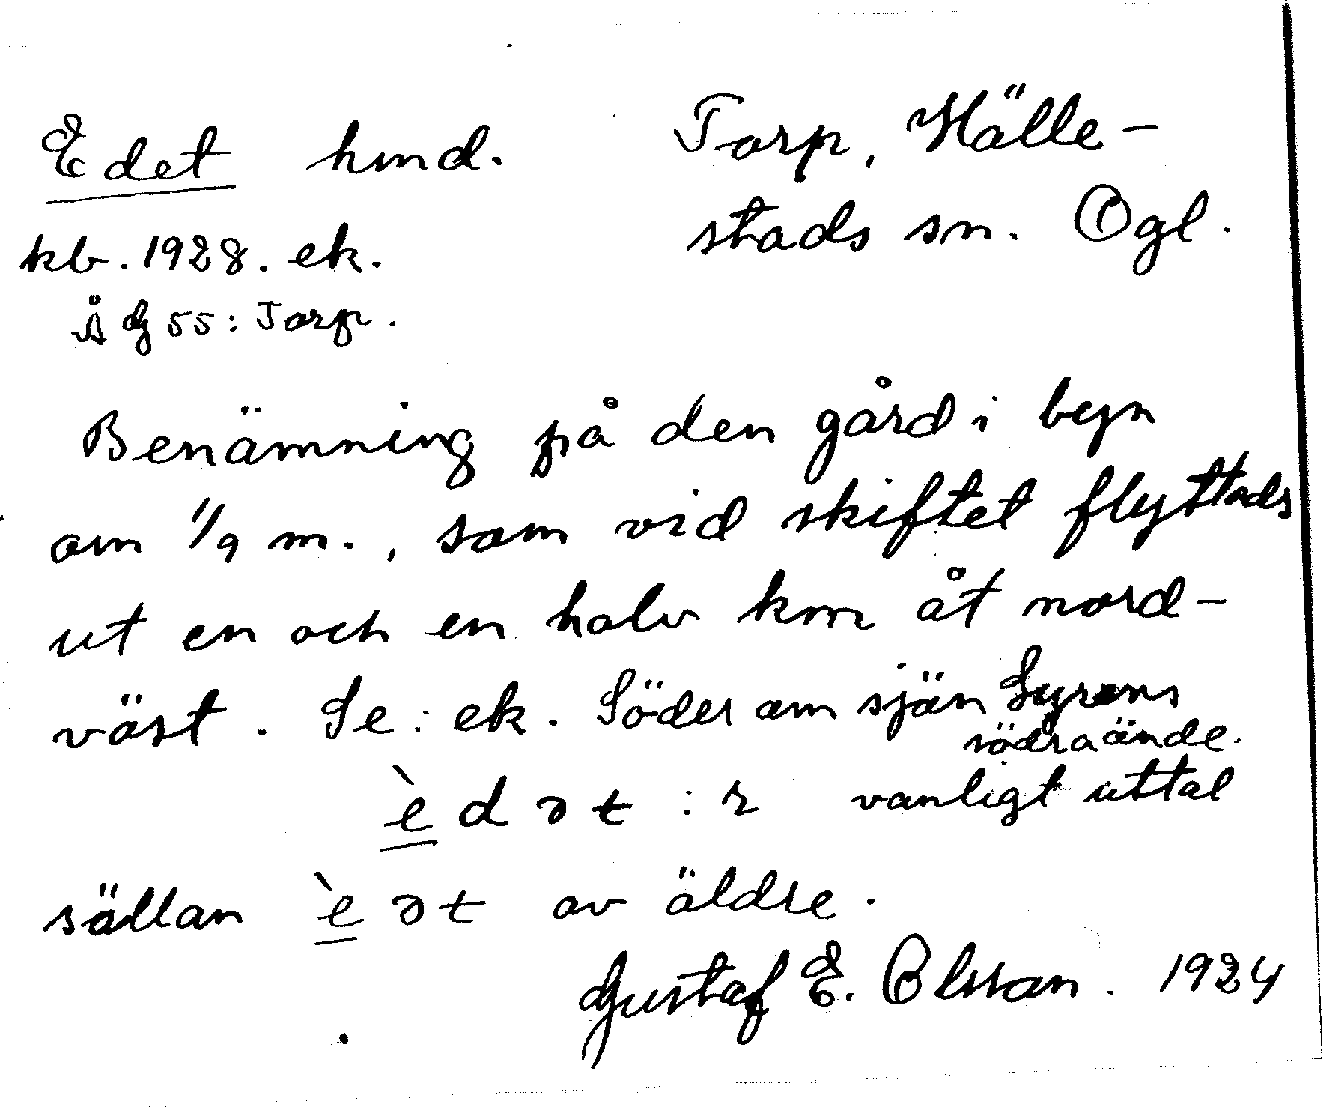 Edet hmd. Torp, Hälle-
stads sn. Ögl.
kb. 1928. ek.
Å dj 55: Torp.
Benämning på den gård i byn
om 1/9 m., som vid skiftet flyttads
ut en och en halv km åt nord-
väst. Se: ek. Söder om sjön Lyrens
södra ände.
èdət : r vanligt uttal
sällan èət av äldre.
Gustaf E. Olsson. 1924